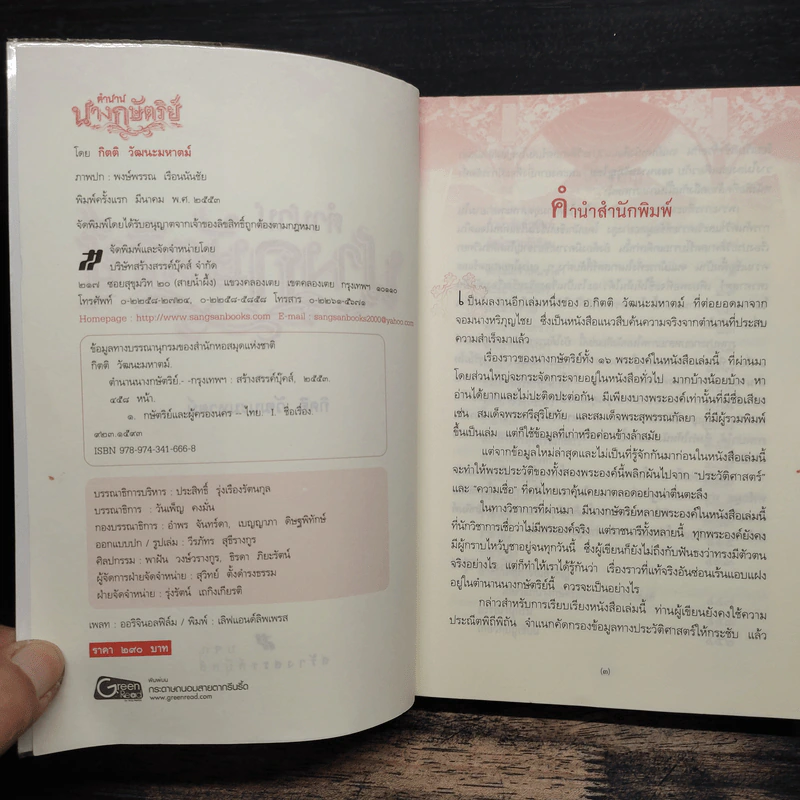 ตำนาน
นางกษัตริย์
โดย กิตติ วัฒนะมหาตม์
ภาพปก : พงษ์พรรณ เรือนนันชัย
พิมพ์ครั้งแรก มีนาคม พ.ศ. ๒๕๕๓
จัดพิมพ์โดยได้รับอนุญาตจากเจ้าของลิขสิทธิ์ถูกต้องตามกฎหมาย
จัดพิมพ์และจัดจำหน่ายโดย
บริษัทสร้างสรรค์บุ๊คส์ จำกัด
๒๑๗ ซอยสุขุมวิท ๒๐ (สายน้ำผึ้ง) แขวงคลองเตย เขตคลองเตย กรุงเทพฯ ๑๐๑๑๐
โทรศัพท์ ๐-๒๒๕๘-๒๗๒๔, ๐-๒๒๕๘-๕๔๕๘ โทรสาร ๐-๒๒๖๑-๕๖๗๑
Homepage : http://www.sangsanbooks.com E-mail : sangsanbooks2000@yahoo.com
ข้อมูลทางบรรณานุกรมของสำนักหอสมุดแห่งชาติ
กิตติ วัฒนะมหาตม์.
ตำนานนางกษัตริย์.- -กรุงเทพฯ : สร้างสรรค์บุ๊คส์, ๒๕๕๓.
๔๕๘ หน้า.
๑. กษัตริย์และผู้ครองนคร – ไทย. I. ชื่อเรื่อง
๙๒๓.๑๕๙๓
ISBN 978-974-341-666-8
บรรณาธิการบริหาร : ประสิทธิ์ รุ่งเรืองรัตนกุล
บรรณาธิการ : วันเพ็ญ คงมั่น
กองบรรณาธิการ : อำพร จันทร์ดา, เบญญาภา ดิษฐพิทักษ์
ออกแบบปก / รูปเล่ม : วีรภัทร สุธีรางกูร
ศิลปกรรม : พาฝัน วงษ์วรางกูร, ธิรดา ภิยะรัตน์
ผู้จัดการฝ่ายจัดจำหน่าย : สุวิทย์ ตั้งดำรงธรรม
ฝ่ายจัดจำหน่าย : รุ่งรัตน์ เถกิงเกียรติ
เพลท : ออริจินอลฟิล์ม / พิมพ์ : เลิฟแอนด์ลิพเพรส
ราคา ๒๙๐ บาท
Green Read
พิมพ์บน
กระดาษถนอมสายตากรีนรี้ด
www.greenread.com
คำนำสำนักพิมพ์
เป็นผลงานอีกเล่มหนึ่งของ อ.กิตติ วัฒนะมหาตม์ ที่ต่อยอดมาจาก
จอมนางหริภุญไชย ซึ่งเป็นหนังสือแนวสืบค้นความจริงจากตำนานที่ประสบ
ความสำเร็จมาแล้ว
เรื่องราวของนางกษัตริย์ทั้ง ๑๖ พระองค์ในหนังสือเล่มนี้ ที่ผ่านมา
โดยส่วนใหญ่จะกระจัดกระจายอยู่ในหนังสือทั่วไป มากบ้างน้อยบ้าง หา
อ่านได้ยากและไม่ปะติดปะต่อกัน มีเพียงบางพระองค์เท่านั้นที่มีชื่อเสียง
เช่น สมเด็จพระศรีสุริโยทัย และสมเด็จพระสุพรรณกัลยา ที่มีผู้รวมพิมพ์
ขึ้นเป็นเล่ม แต่ก็ใช้ข้อมูลที่เก่าหรือค่อนข้างล้าสมัย
แต่จากข้อมูลใหม่ล่าสุดและไม่เป็นที่รู้จักกันมาก่อนในหนังสือเล่มนี้
จะทำให้พระประวัติของทั้งสองพระองค์นี้พลิกผันไปจาก “ประวัติศาสตร์”
และ “ความเชื่อ” ที่คนไทยเราคุ้นเคยมาตลอดอย่างน่าตื่นตะลึง
ในทางวิชาการที่ผ่านมา มีนางกษัตริย์หลายพระองค์ในหนังสือเล่มนี้
ที่นักวิชาการเชื่อว่าไม่มีพระองค์จริง แต่ราชนารีทั้งหลายนี้ ทุกพระองค์ยังคง
มีผู้กราบไหว้บูชาอยู่จนทุกวันนี้ ซึ่งผู้เขียนก็ยังไม่ถึงกับฟันธงว่าทรงมีตัวตน
จริงอย่างไร แต่ก็ทำให้เราได้รู้กันว่า เรื่องราวที่แท้จริงอันซ่อนเร้นแอบแฝง
อยู่ในตำนานนางกษัตริย์นี้ ควรจะเป็นอย่างไร
กล่าวสำหรับการเรียบเรียงหนังสือเล่มนี้ ท่านผู้เขียนยังคงใช้ความ
ประณีตพิถีพิถัน จำแนกคัดกรองข้อมูลทางประวัติศาสตร์ให้กระชับ แล้ว
(๓)